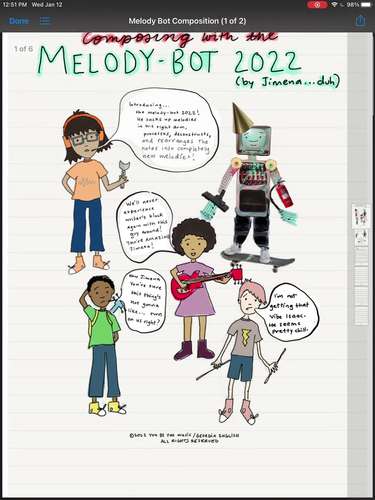 12:51 PM Wed Jan 12
98%
Done
Melody Bot Composition (1 of 2)
1 of 6
Composing with the
MELODY-BOT 2022
(by Jimena...duh)
Introducing...
the Melody-Bot 2022!
He sucks up melodies
in his right arm,
processes, deconstructs,
and rearranges the
notes into completely
new melodies!
We'll never
experience
writer's block
again with this
guy around!
You're amazing
Jimena!
Um, Jimena
You're sure
this thing's
not gonna
like... eat
us right?
I'm not
getting that
vibe Isaac.
He seems
pretty chill.
©2022 You Be the Music/Georgia English
All Rights Reserved